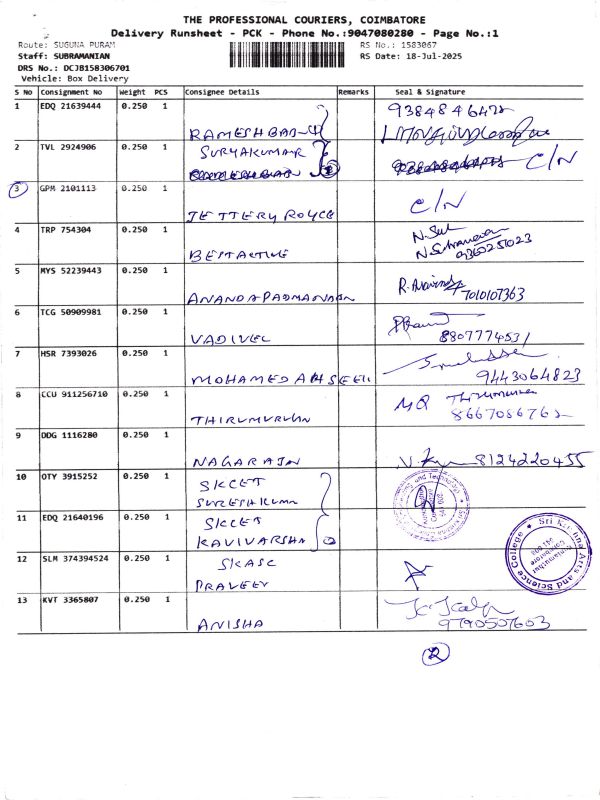 THE PROFESSIONAL COURIERS, COIMBATORE
Delivery Runsheet - PCK - Phone No.:9047080280 - Page No.:1
Route: SUGUNA PURAM
RS No.: 1583067
Staff: SUBRAMANIAN
RS Date: 18-Jul-2025
DRS No.: DCJB158306701
Vehicle: Box Delivery
S No Consignment No Weight PCS Consignee Details Remarks Seal & Signature
1 EDQ 21639444 0.250 1
RAMESH BABU
2 TVL 2924906 0.250 1 SURYAKUMAR C/N
3 GPM 2101113 0.250 1 C/N
JEFFERY ROYCE
4 TRP 754304 0.250 1
BESTACTIVE 9360251023
5 MYS 52239443 0.250 1 R. Aravind
ANANDA PADMANABAN 7010107363
6 TCG 50909981 0.250 1
VADIVEL 8807774531
7 HSR 7393026 0.250 1
MOHAMED 9443064823
8 CCU 911256710 0.250 1
THIRUMURUGAN
9 DDG 1116280 0.250 1
NAGARAJN 8124220455
10 OTY 3915252 0.250 1 SKCET
SURESHKUMAR
11 EDQ 21640196 0.250 1 SKCET
KAVIVARSHA
12 SLM 374394524 0.250 1 SKASC
PRAVEEN
Sri Krishna Arts and Science College
13 KVT 3365807 0.250 1
ANISHA 9790507603
2